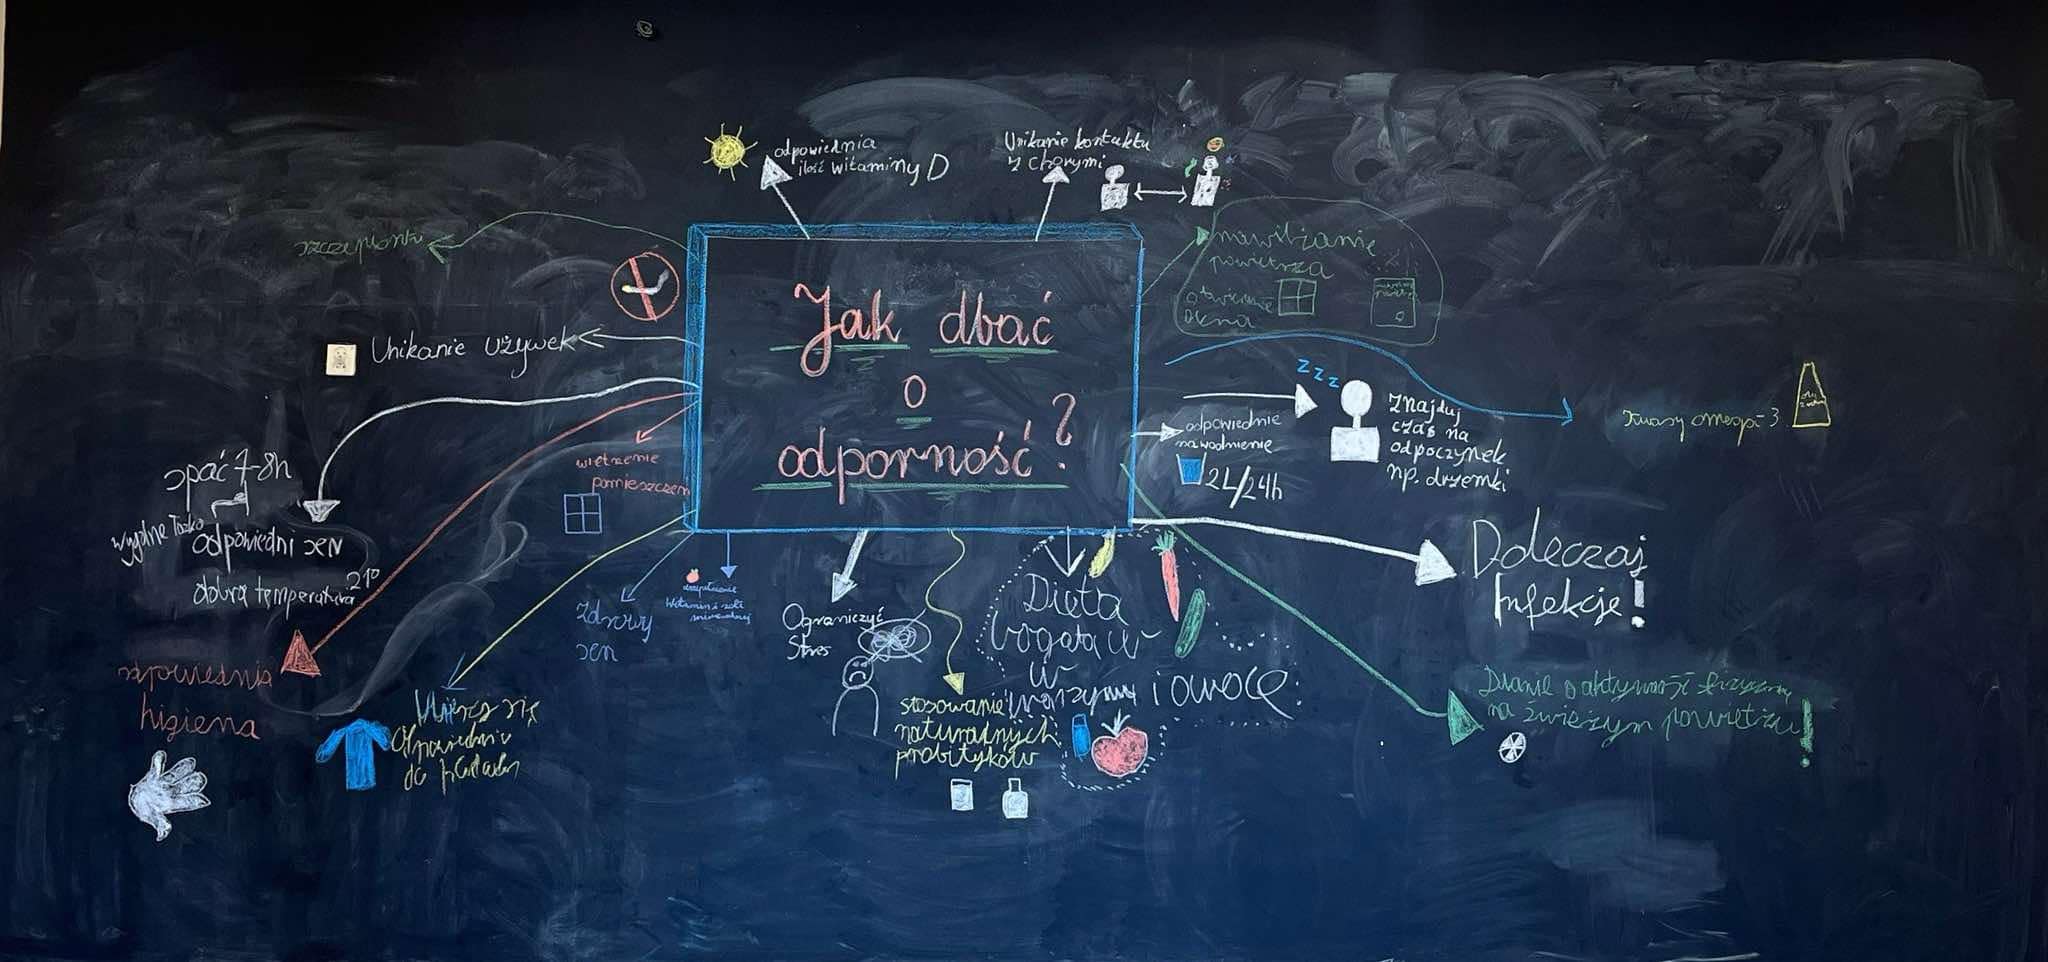 Jak dbać
o
odporność?
odpowiednia
ilość witaminy D
Unikanie kontaktu
z chorymi
nawilżanie
powietrza
otwieranie
okna
zzz
Znajduj
czas na
odpoczynek
np. drzemki
odpowiednie
nawodnienie
2L/24h
kwasy omega-3
Doleczaj
Infekcje!
Dbanie o aktywność fizyczną
na świeżym powietrzu!
Dieta
bogata w
w
warzywa i owoce
stosowanie
naturalnych
probityków
Ograniczyć
Stres
witamin i soli
Zdrowy
sen
Ubieraj się
odpowiednio
do
wietrzenie
pomieszczeń
odpowiednia
higiena
spać 7-8h
wygodne łóżko
odpowiedni sen
dobra temperatura 21°
Unikanie używek
szczepionki